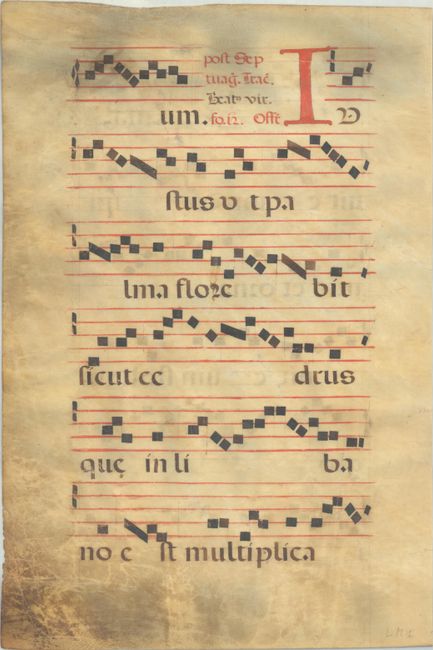 post Sep
tuag̃. Trac̃.
Beatꝰ vir.
um. fo. 12. Offẽ I
stus v t pa
lma flore bit
sicut ce drus
quę in li ba
no e st multiplica